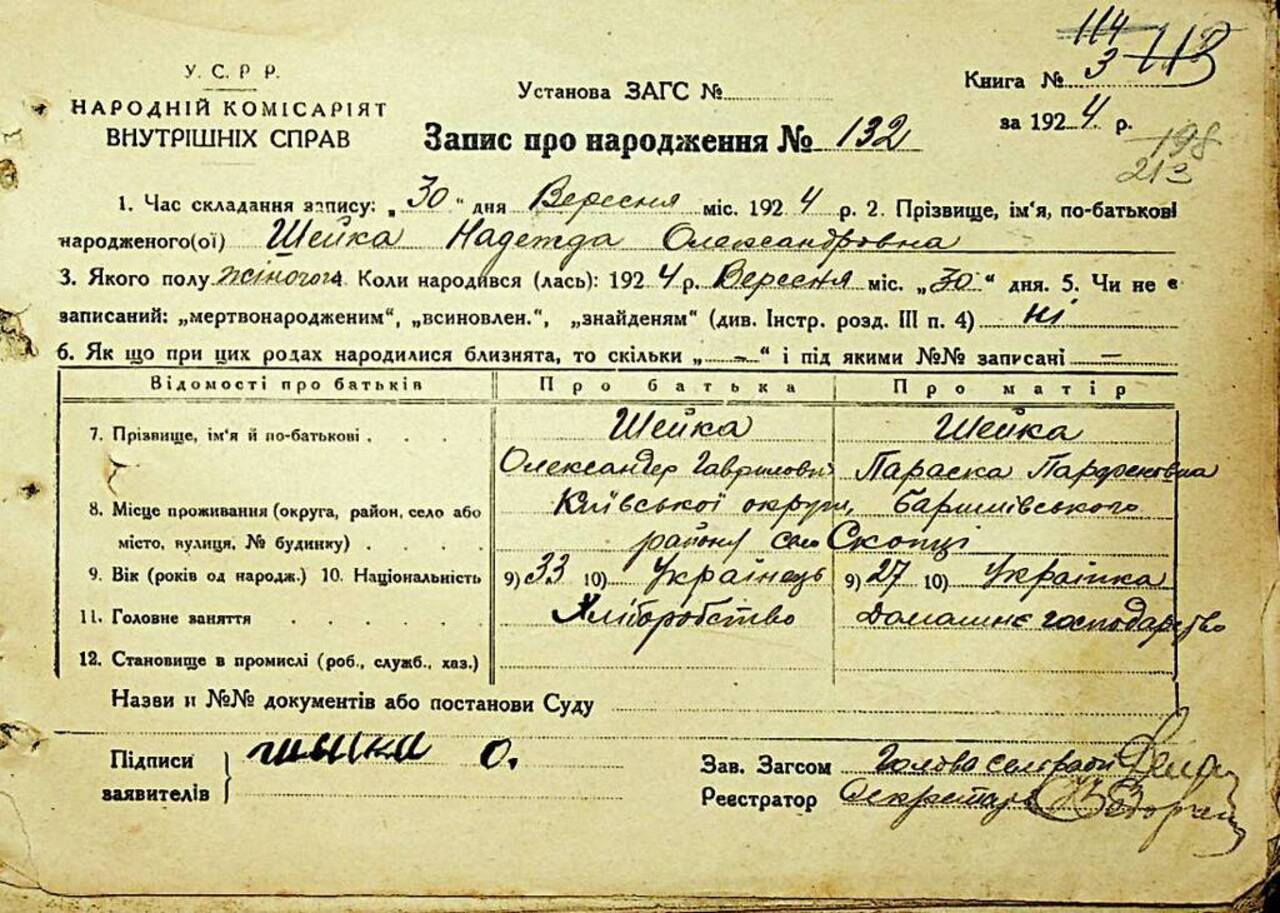 114
У. С. Р Р.
НАРОДНІЙ КОМІСАРІЯТ
ВНУТРІШНІХ СПРАВ
Установа ЗАГС №
Книга № 3 113
за 1924 р.
Запис про народження № 132
198
213
1. Час складання запису: „30“ дня Вересня міс. 1924 р. 2. Прізвище, ім'я, по-батькові
народженого(ої) Шейка Надежда Олександровна
3. Якого полу жіночого 4. Коли народився (лась): 1924 р. Вересня міс. „30“ дня. 5. Чи не є
записаний: „мертвонародженим“, „всиновлен.“, „знайденям“ (див. Інстр. розд. III п. 4) ні
6. Як що при цих родах народилися близнята, то скільки „-“ і під якими №№ записані —
Відомості про батьків Про батька Про матір
7. Прізвище, ім'я й по-батькові Шейка Шейка
Олександер Гаврилович Параска Парфентівна
8. Місце проживання (округа, район, село або Київської округи, Баришівського
місто, вулиця, № будинку) району село Скопці
9. Вік (років од народж.) 10. Національність 9) 33 10) Українець 9) 27 10) Українка
11. Головне заняття Хліборобство Домашнє господарство
12. Становище в промислі (роб., служб., хаз.)
Назви и №№ документів або постанови Суду
Підписи
заявителів
О.
Зав. Загсом Голова сельради
Реєстратор Секретарь